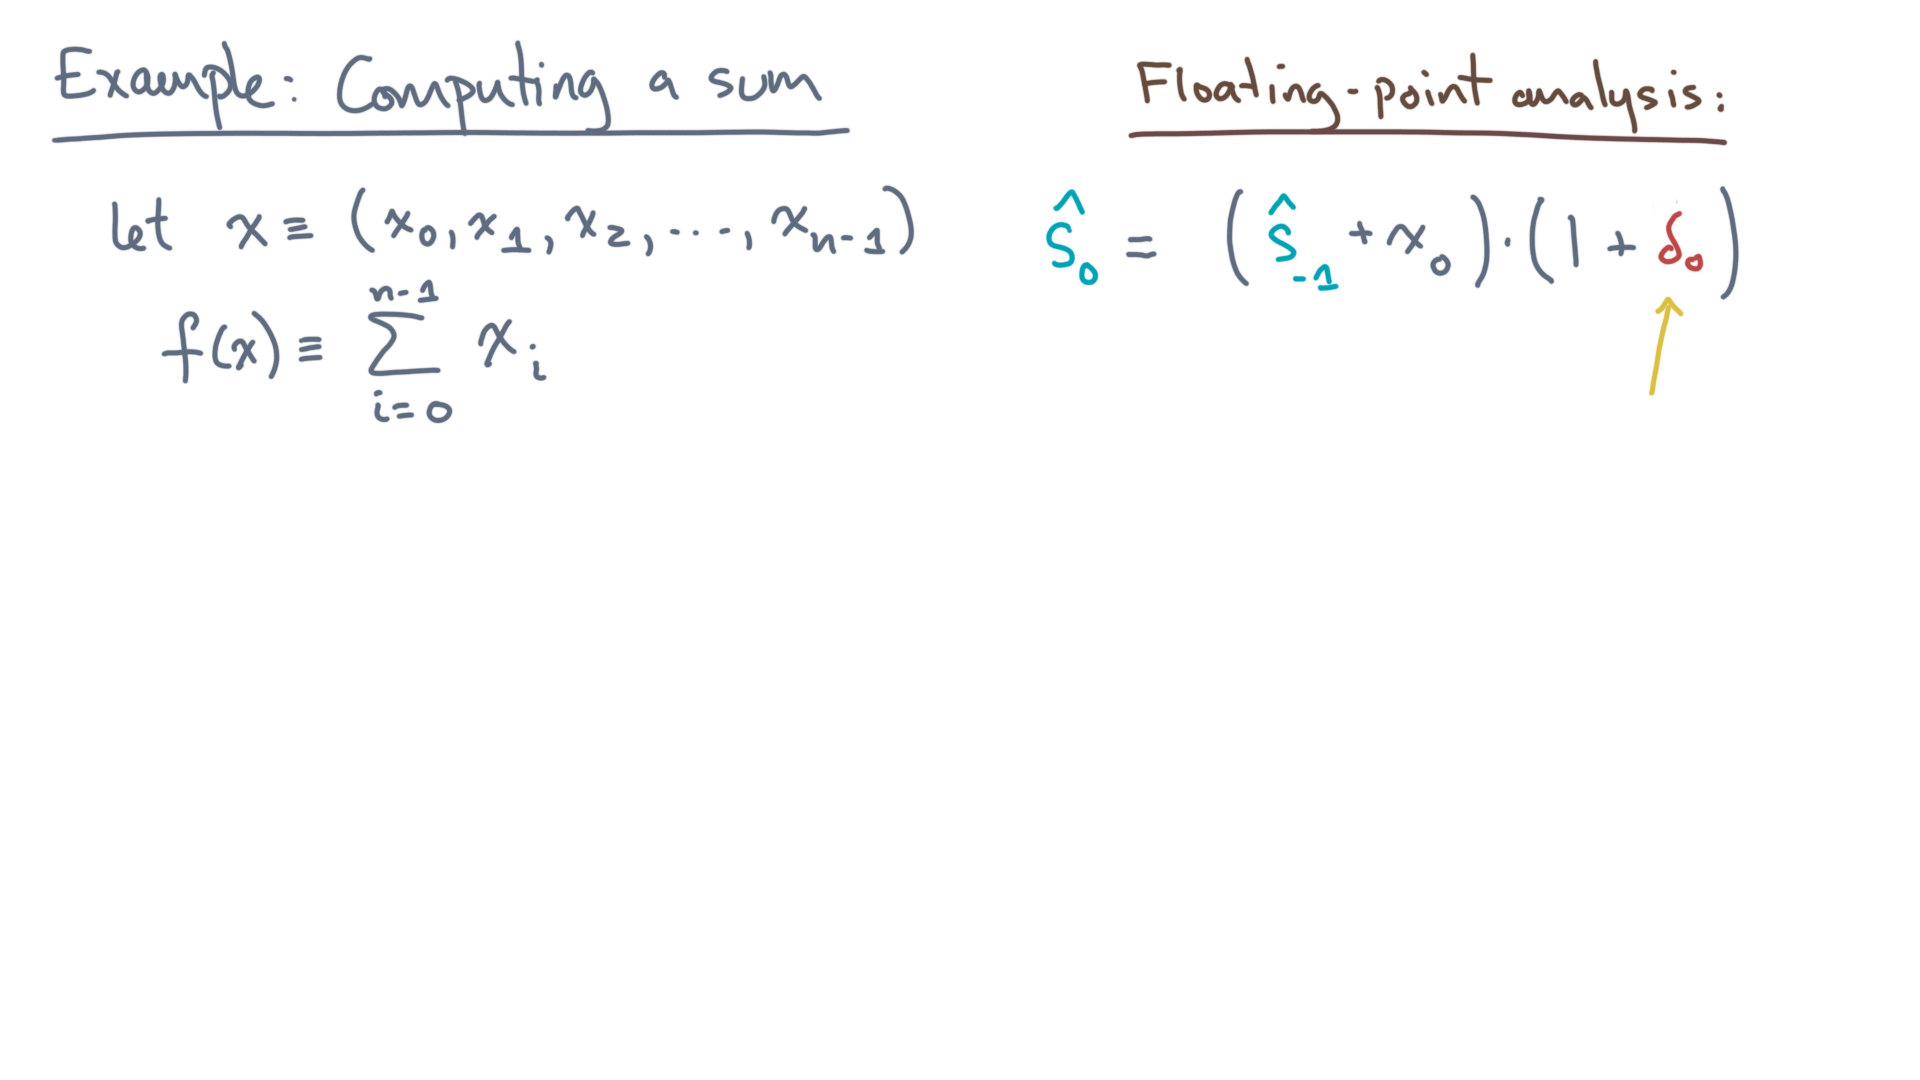 Example: Computing a sum
let x ≡ (x₀, x₁, x₂, ..., xₙ₋₁)
f(x) ≡ ∑ᵢ₌₀ⁿ⁻¹ xᵢ
Floating-point analysis:
ŝ₀ = (ŝ₋₁ + x₀)·(1 + δ₀)